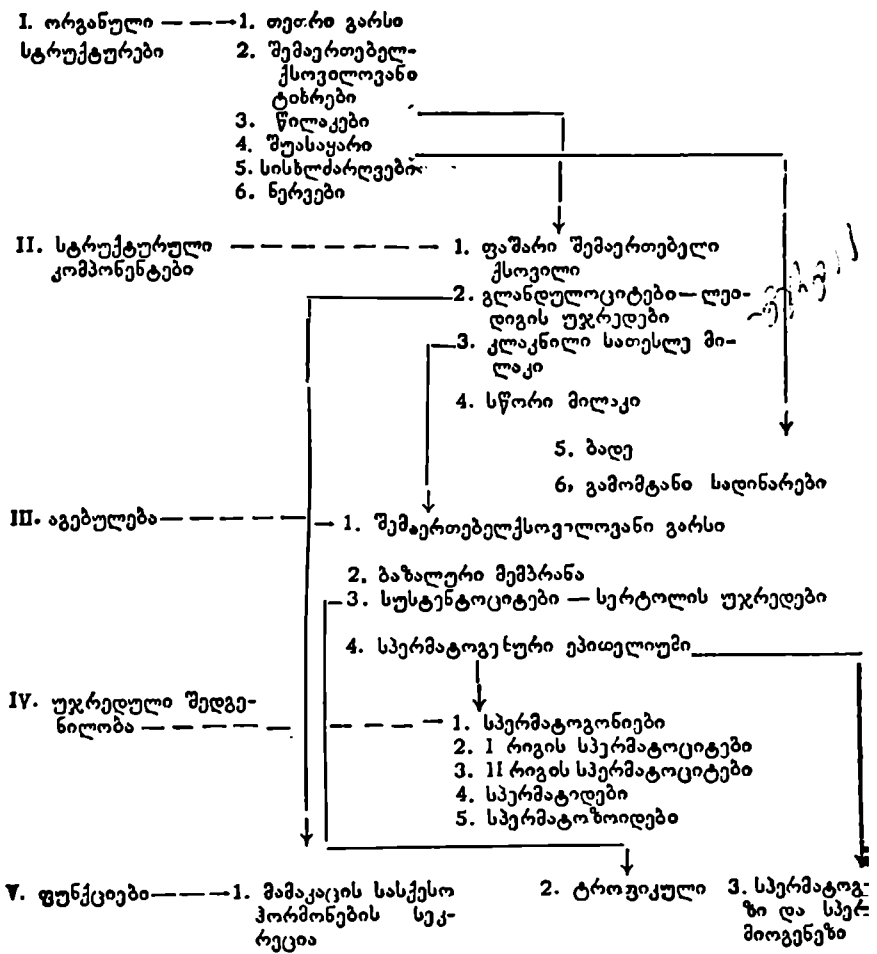 I. ორგანული — — → 1. თეთრი გარსი
სტრუქტურები 2. შემაერთებელ-
ქსოვილოვანი
ტიხრები
3. წილაკები
4. შუასაყარი
5. სისხლძარღვები
6. ნერვები
II. სტრუქტურული — — — — — 1. ფაშარი შემაერთებელი
კომპონენტები ქსოვილი
2. გლანდულოციტები — ლეი-
დიგის უჯრედები
3. კლაკნილი სათესლე მი-
ლაკი
4. სწორი მილაკი
5. ბადე
6, გამომტანი სადინარები
III. აგებულება — — — — → 1. შემაერთებელქსოვილოვანი გარსი
2. ბაზალური მემბრანა
3. სუსტენტოციტები — სერტოლის უჯრედები
4. სპერმატოგენური ეპითელიუმი
IV. უჯრედული შედგე-
ნილობა — — — — — → 1. სპერმატოგონიები
2. I რიგის სპერმატოციტები
3. II რიგის სპერმატოციტები
4. სპერმატიდები
5. სპერმატოზოიდები
V. ფუნქციები — — → 1. მამაკაცის სასქესო 2. ტროფიკული 3. სპერმატოგ-
ჰორმონების სეკ- ზი და სპერ-
რეცია მიოგენეზი